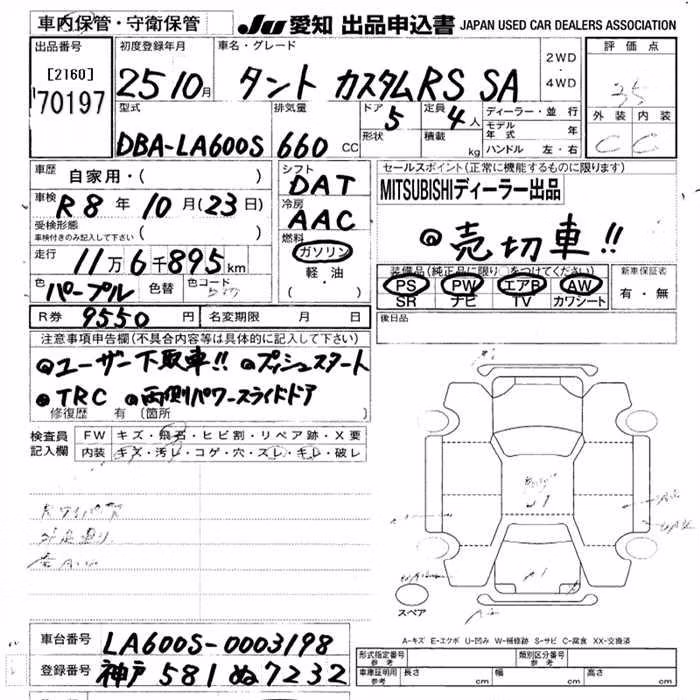 車内保管・守衛保管
JU 愛知 出品申込書 JAPAN USED CAR DEALERS ASSOCIATION
出品番号
[2160]
70197
初度登録年月
25 10月
車名・グレード
タント カスタムRS SA
2WD
・
4WD
評価点
35
外装 内装
C C
型式
DBA-LA600S
排気量
660 CC
ドア
5
形状
定員
4人
積載
kg
ディーラー・並行
モデル年式 年
ハンドル 左・右
車歴
自家用・( )
車検
R8年 10月(23日)
受検形態
車検付きのみ記入して下さい ( )
走行
11万6千895km
色
パープル
色替
色コード
シフト
DAT
冷房
AAC
燃料
ガソリン
軽・油
・( )
セールスポイント(正常に機能するものに限ります)
MITSUBISHIディーラー出品
◎売切車!!
装備品(純正品に限り○をつけてください)
PS PW エアB AW
SR ナビ TV カワシート
新車保証書
有・無
後日品
R券 9550円
名変期限 月 日
注意事項申告欄(不具合内容等は具体的に記入して下さい)
◎ユーザー下取車!! ◎プッシュスタート
◎TRC ◎両側パワースライドドア
修復歴 有〔箇所 〕
検査員記入欄
FW キズ・飛石・ヒビ割・リペア跡・X要
内装 キズ・汚レ・コゲ・穴・スレ・キレ・破レ
スペア
A-キズ E-エクボ U-凹み W-補修跡 S-サビ C-腐食 XX-交換済
車台番号 LA600S-0003198
登録番号 神戸 581 ぬ 7232
形式指定番号 参考
類別区分番号 参考
車庫証明用 参考 長さ cm 幅 cm 高さ cm